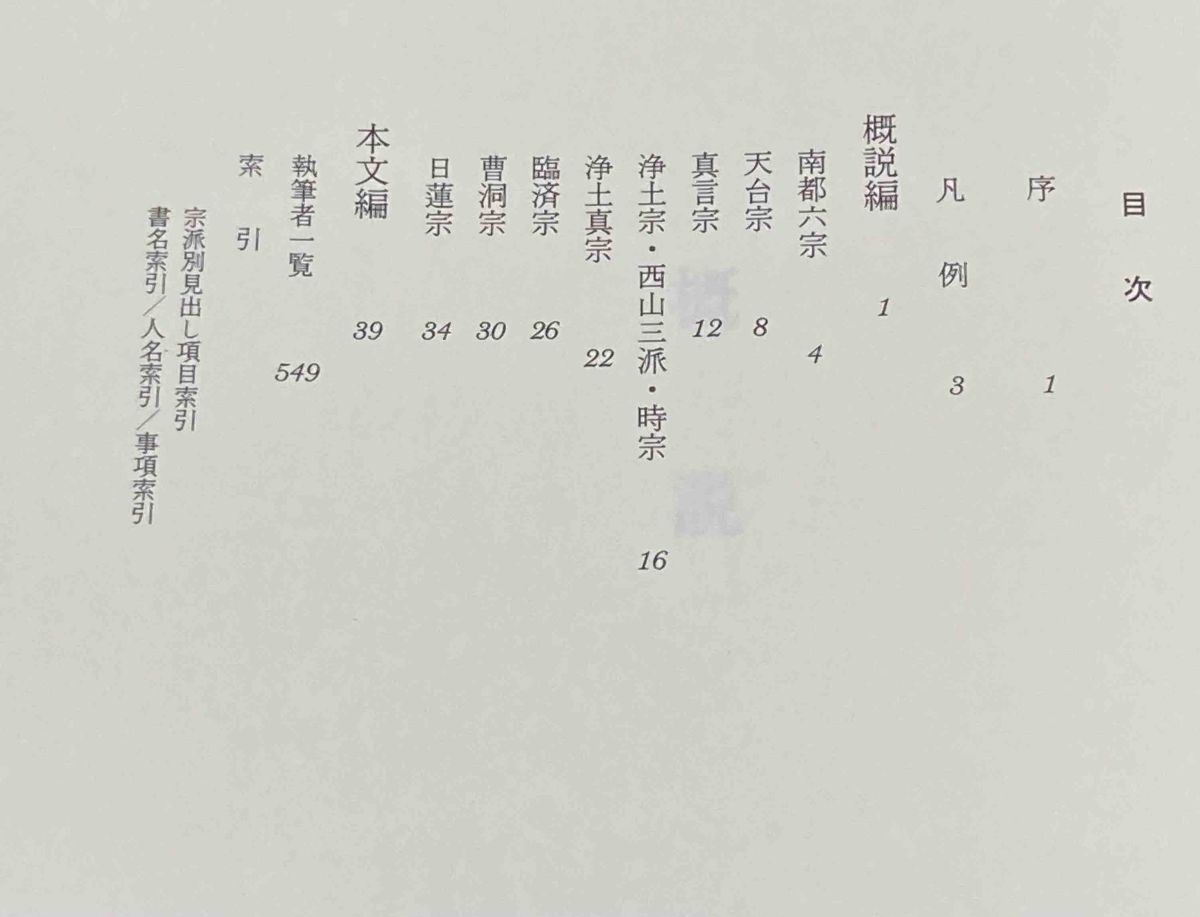 目次
序 1
凡例 3
概説編 1
南都六宗 4
天台宗 8
真言宗 12
浄土宗・西山三派・時宗 16
浄土真宗 22
臨済宗 26
曹洞宗 30
日蓮宗 34
本文編 39
執筆者一覧 549
索引
宗派別見出し項目索引
書名索引／人名索引／事項索引